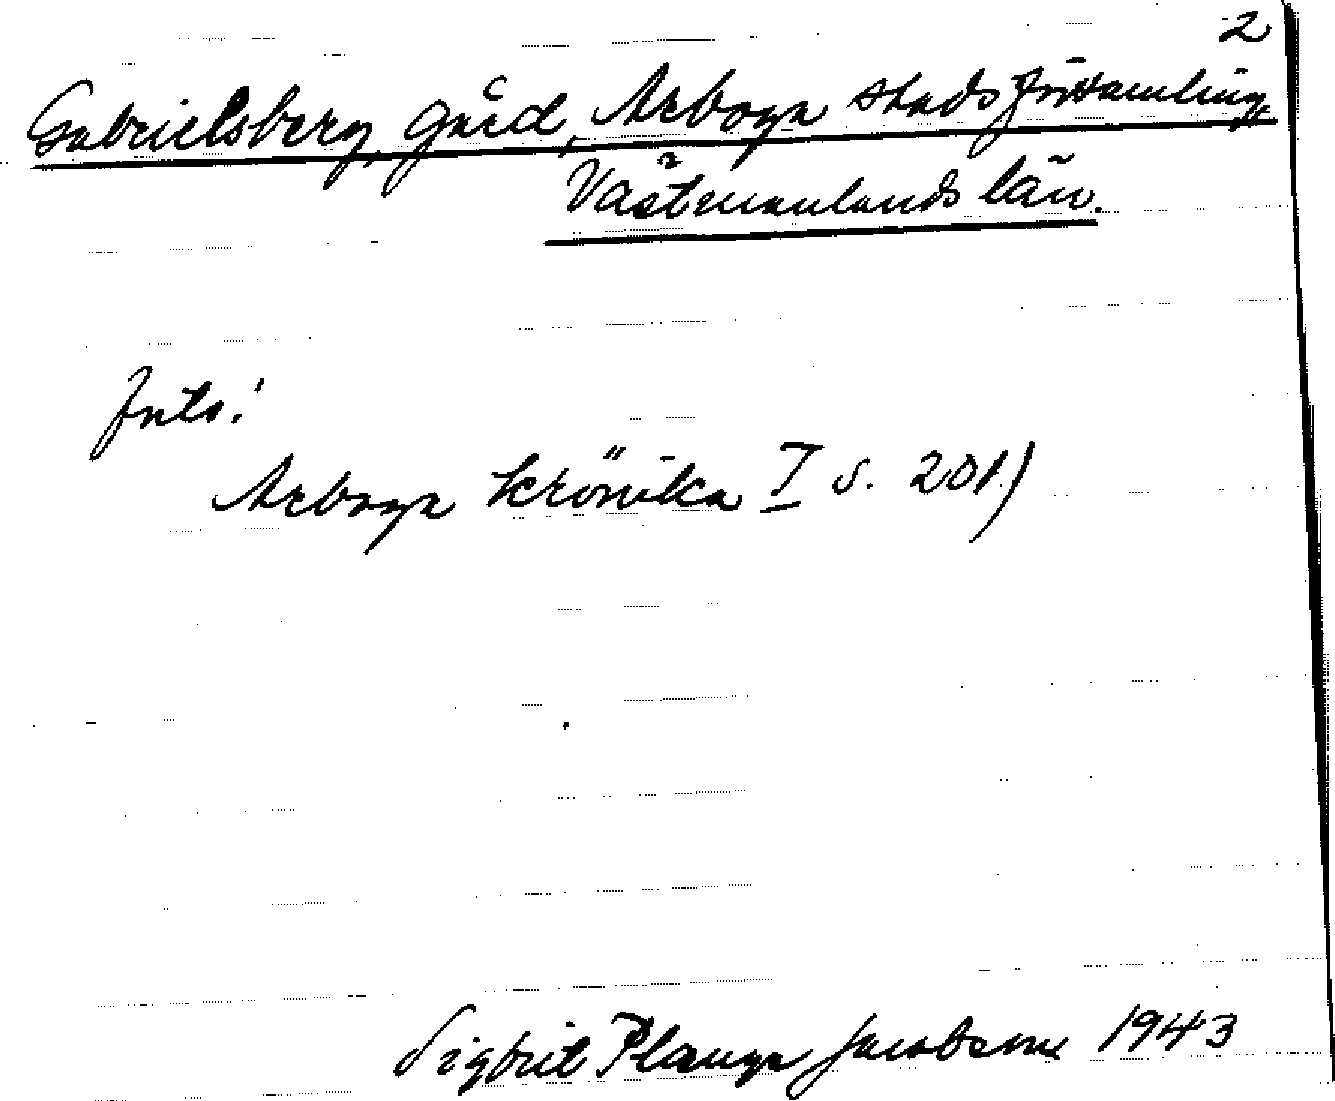 2
Gabrielsberg, gård, Arboga stadsförsamling,
Västmanlands län.
Arboga krönika I s. 201.)
Sigbrit Plange Jacobson 1943